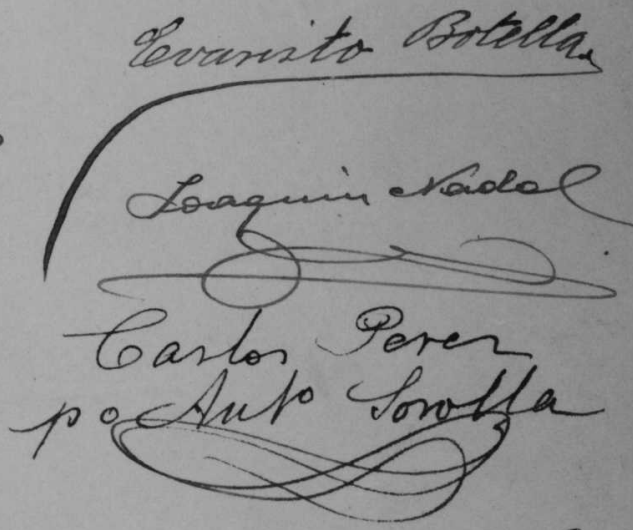 Evaristo Botella
Joaquin Nadal
Carlos Perez
po Anto Sorolla